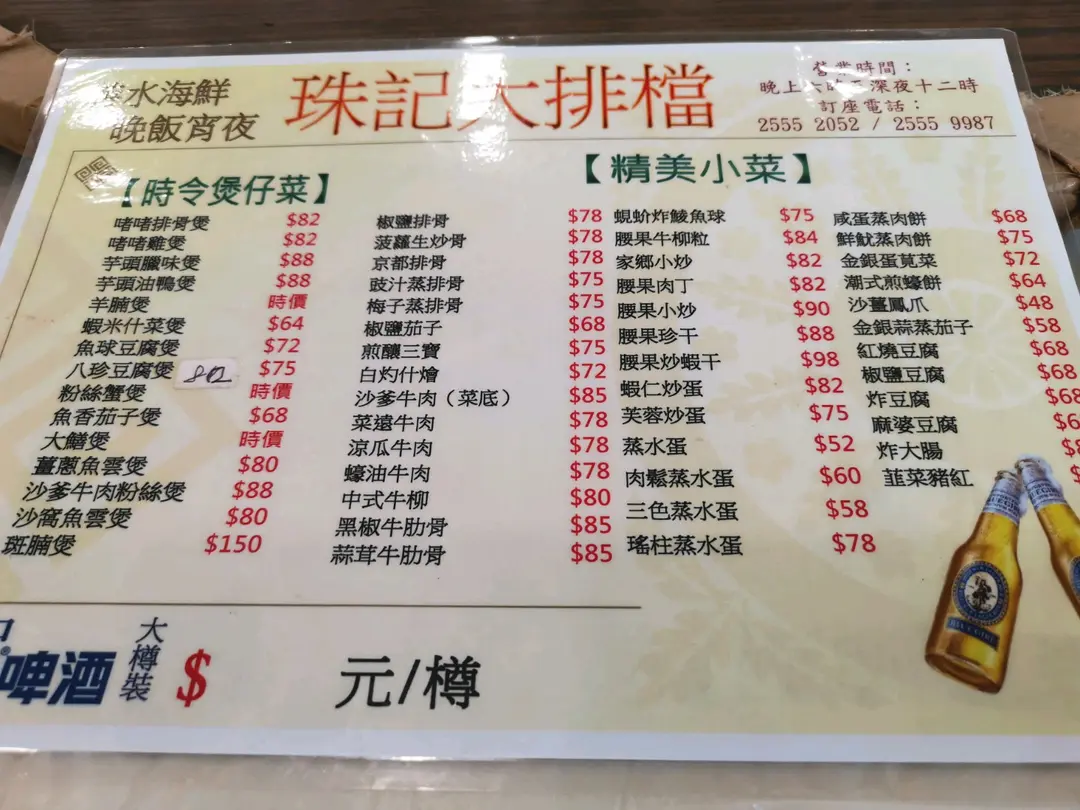 水海鮮
晚飯宵夜
珠記大排檔
營業時間：
晚上六時至深夜十二時
訂座電話：
2555 2052 / 2555 9987
【時令煲仔菜】
啫啫排骨煲 $82
啫啫雞煲 $82
芋頭臘味煲 $88
芋頭油鴨煲 $88
羊腩煲 時價
蝦米什菜煲 $64
魚球豆腐煲 $72
八珍豆腐煲 $75
粉絲蟹煲 時價
魚香茄子煲 $68
大鱔煲 時價
薑蔥魚雲煲 $80
沙爹牛肉粉絲煲 $88
沙窩魚雲煲 $80
斑腩煲 $150
【精美小菜】
椒鹽排骨 $78
菠蘿生炒骨 $78
京都排骨 $78
豉汁蒸排骨 $75
梅子蒸排骨 $75
椒鹽茄子 $68
煎釀三寶 $75
白灼什燴 $72
沙爹牛肉（菜底） $85
菜遠牛肉 $78
涼瓜牛肉 $78
蠔油牛肉 $78
中式牛柳 $80
黑椒牛肋骨 $85
蒜茸牛肋骨 $85
蜆蚧炸鯪魚球 $75
腰果牛柳粒 $84
家鄉小炒 $82
腰果肉丁 $82
腰果小炒 $90
腰果珍干 $88
腰果炒蝦干 $98
蝦仁炒蛋 $82
芙蓉炒蛋 $75
蒸水蛋 $52
肉鬆蒸水蛋 $60
三色蒸水蛋 $58
瑤柱蒸水蛋 $78
咸蛋蒸肉餅 $68
鮮魷蒸肉餅 $75
金銀蛋莧菜 $72
潮式煎蠔餅 $64
沙薑鳳爪 $48
金銀蒜蒸茄子 $58
紅燒豆腐 $68
椒鹽豆腐 $68
炸豆腐
麻婆豆腐
炸大腸
韮菜豬紅
啤酒
大樽裝
$ 元/樽
BLUE GIRL